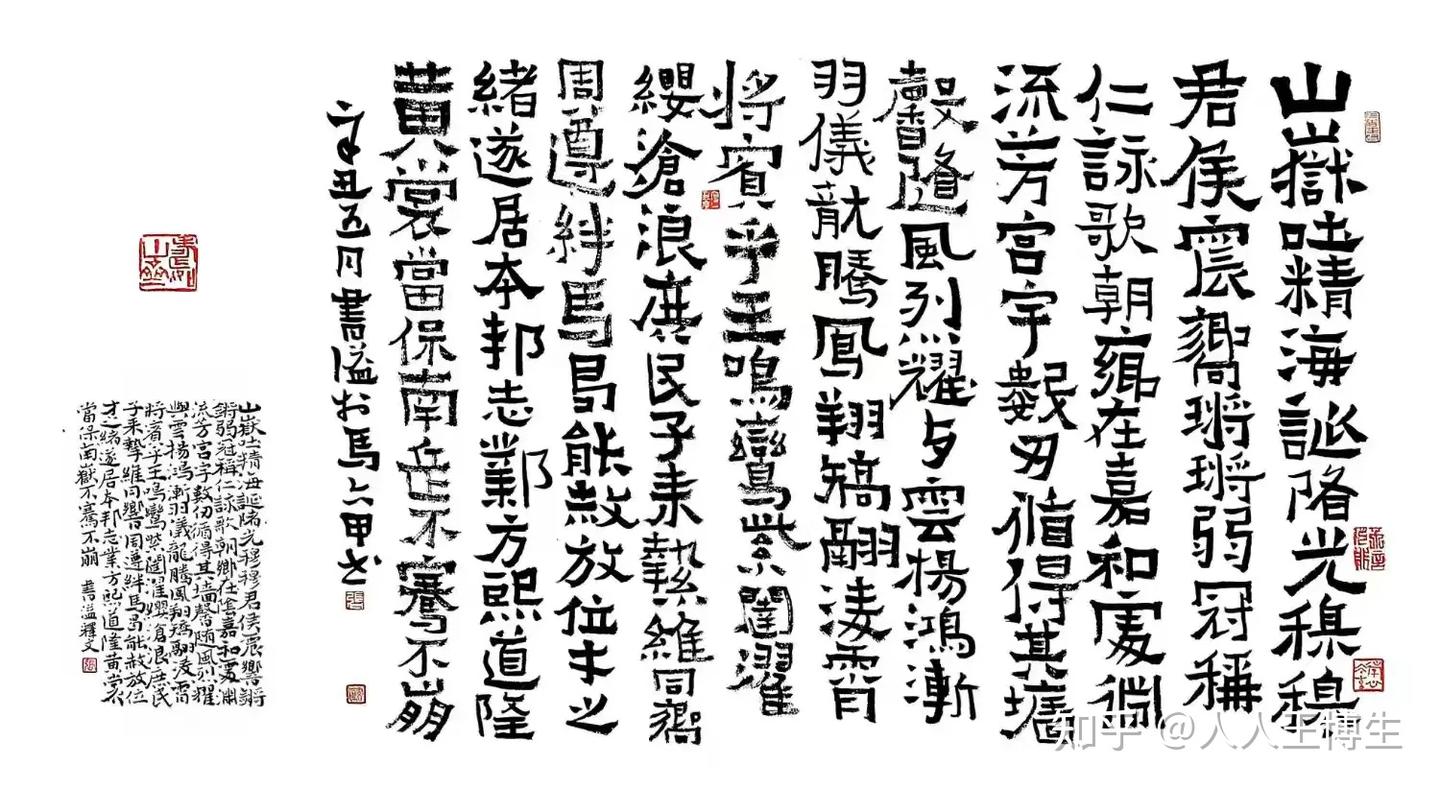 山嶽吐精海誕降光穆穆
君侯震嚮鏘鏘弱冠稱
仁詠歌朝鄉在嘉和處淵
流芳宮宇數仞循得其墻
馨隨風烈耀与雲楊鴻漸
羽儀龍騰鳳翔矯翮淩霄
將賓乎王鳴鸞紫闥濯
纓滄浪庶民子来縶維同嚮
周遵絆馬曷能赦放位才之
緒遂居本邦志鄴方熙道隆
黄裳當保南岳不騫不崩
辛丑五月書溢於馬六甲
山嶽吐精海誕降光穆穆君侯震響鏘
鏘弱冠稱仁詠歌朝鄉在陰嘉和處淵
流芳宮宇數仞循得其墻馨随風烈耀
與雲揚鴻漸羽儀龍騰鳳翔矯翮淩霄
將賓乎王鳴鸞紫闥濯纓滄浪庶民
子来縶維同響周遵絆馬曷能赦放位
才之緒遂居本邦志業方熙道隆黄裳
當保南嶽不騫不崩 書溢釋文
知乎 @人人王博生